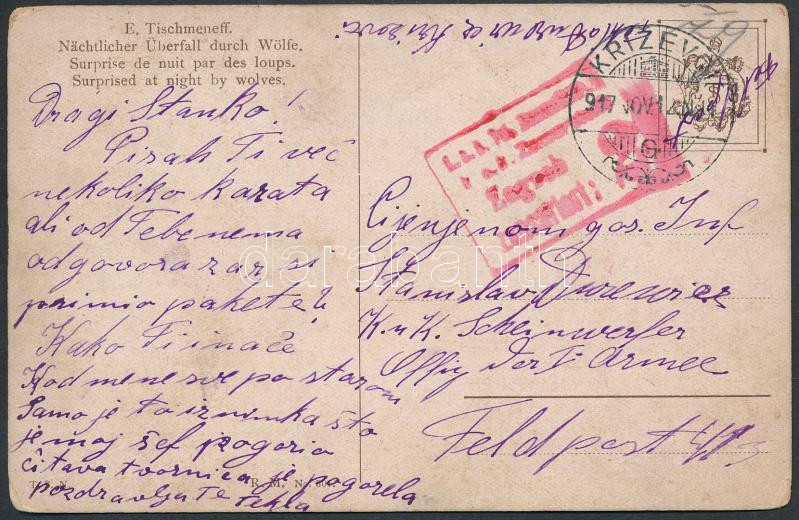 E. Tischmeneff.
Nächtlicher Überfall durch Wölfe.
Surprise de nuit par des loups.
Surprised at night by wolves.
Dragi Stanko!
Pisah Ti već
nekoliko karata
ali od Tebe nema
odgovora zar si
primio pakete?
Kako Ti inače
Kod mene sve po starom
Samo je to iznimka što
je moj šef pogorio
čitava tvornica je pogorela
pozdravlja Te Tekla
R. M. No.
KRIŽEVCI
917 NOV 12
G
Zagreb
Zensuriert:
Cijenjenom gos. Inf
Stanislav Durewicz
K. u K. Scheinwerfer
Offiz der I Armee
Feldpost
darabanth